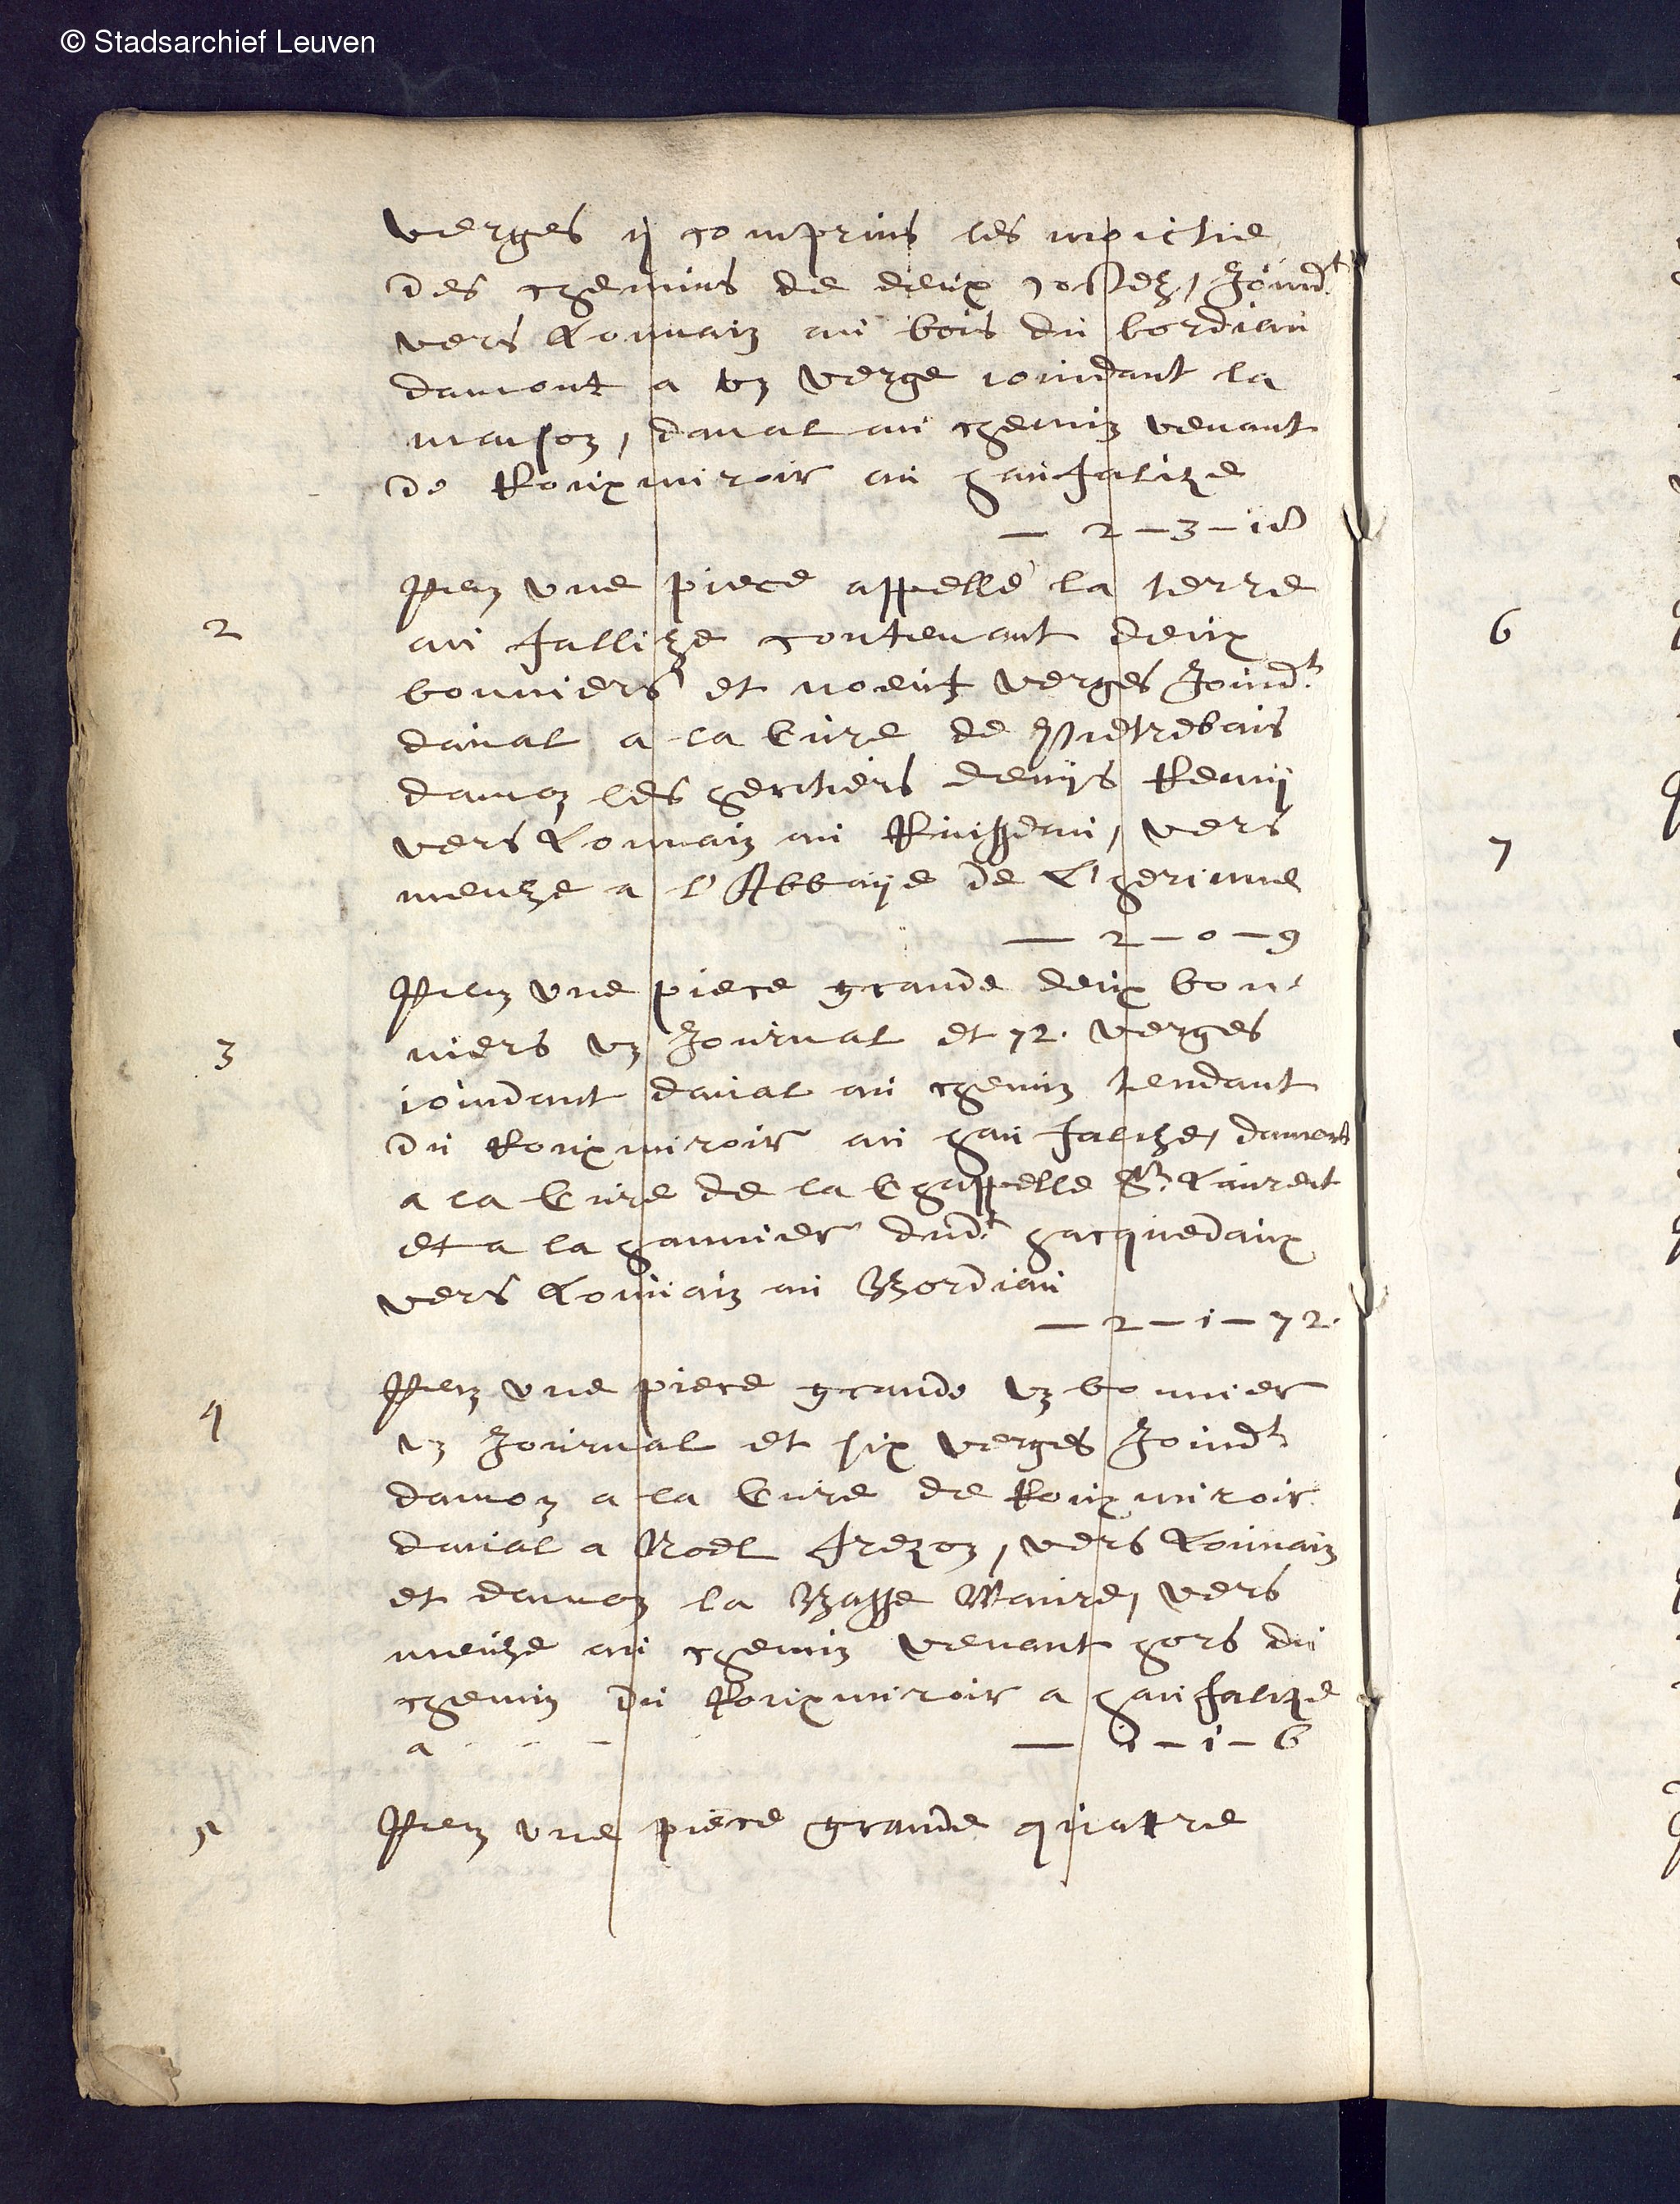 © Stadsarchief Leuven
verges ij comprins les moictie
des chemins de deux costez, Joind.t
vers Louvain au bois du bordiau
damont a un verge ioindant la
maison, daual au chemin venant
de Rouxmiroir au haufalize
— 2 — 3 —
2
Item vne piece appellé la terre
au fallize contenant deux
bonniers et noeuf verges Joind.t
daual a la Cure de Pietrebais
damon les heritiers denys Remij
vers Louuain au Ruisseau, vers
meuze a l'Abbaije de L'herinne
— 2 — 0 — 9
3
Item vne piece grande deux bon-
niers vn Journal et 72. verges
ioindant daual au chemin tendant
du Rouxmiroir au haufalize, damont
a la Cure de la Chappelle S.t Laurent
et a la dud.t hacquedaux
vers Louuain au Bordiau
— 2 — 1 — 72.
4
Item vne piece grande vn bonnier
vn Journal et six verges Joind.t
damon a la Cure de Rouxmiroir
daual a Noel frezon, vers Louuain
et damon la Basse Waure, vers
meuze au chemin venant hors du
chemin du Rouxmiroir a haufalize
a — 1 — 1 — 6
5
Item vne piece grande quattre
6
7